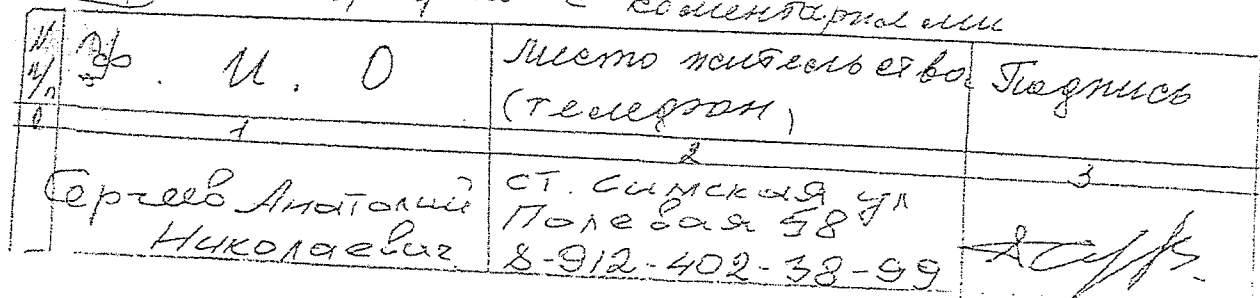 с коментариями
N п/п
Ф. И. О
Место жительства (телефон)
Подпись
0
1
2
3
Сергеев Анатолий
Николаевич
ст. Симская ул
Полевая 58
8-912-402-38-99